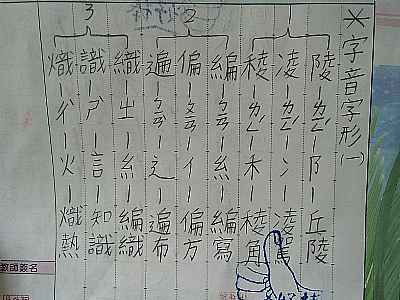 ※字音字形(一)
陵-ㄌㄧㄥˊ-阝-丘陵
凌-ㄌㄧㄥˊ-冫-凌駕
稜-ㄌㄥˊ-禾-稜角
2
編-ㄅㄧㄢ-糸-編寫
偏-ㄆㄧㄢ-亻-偏方
遍-ㄅㄧㄢˋ-辶-遍布
3
織-ㄓ-糸-編織
識-ㄕˋ-言-知識
熾-ㄔˋ-火-熾熱
教師簽名